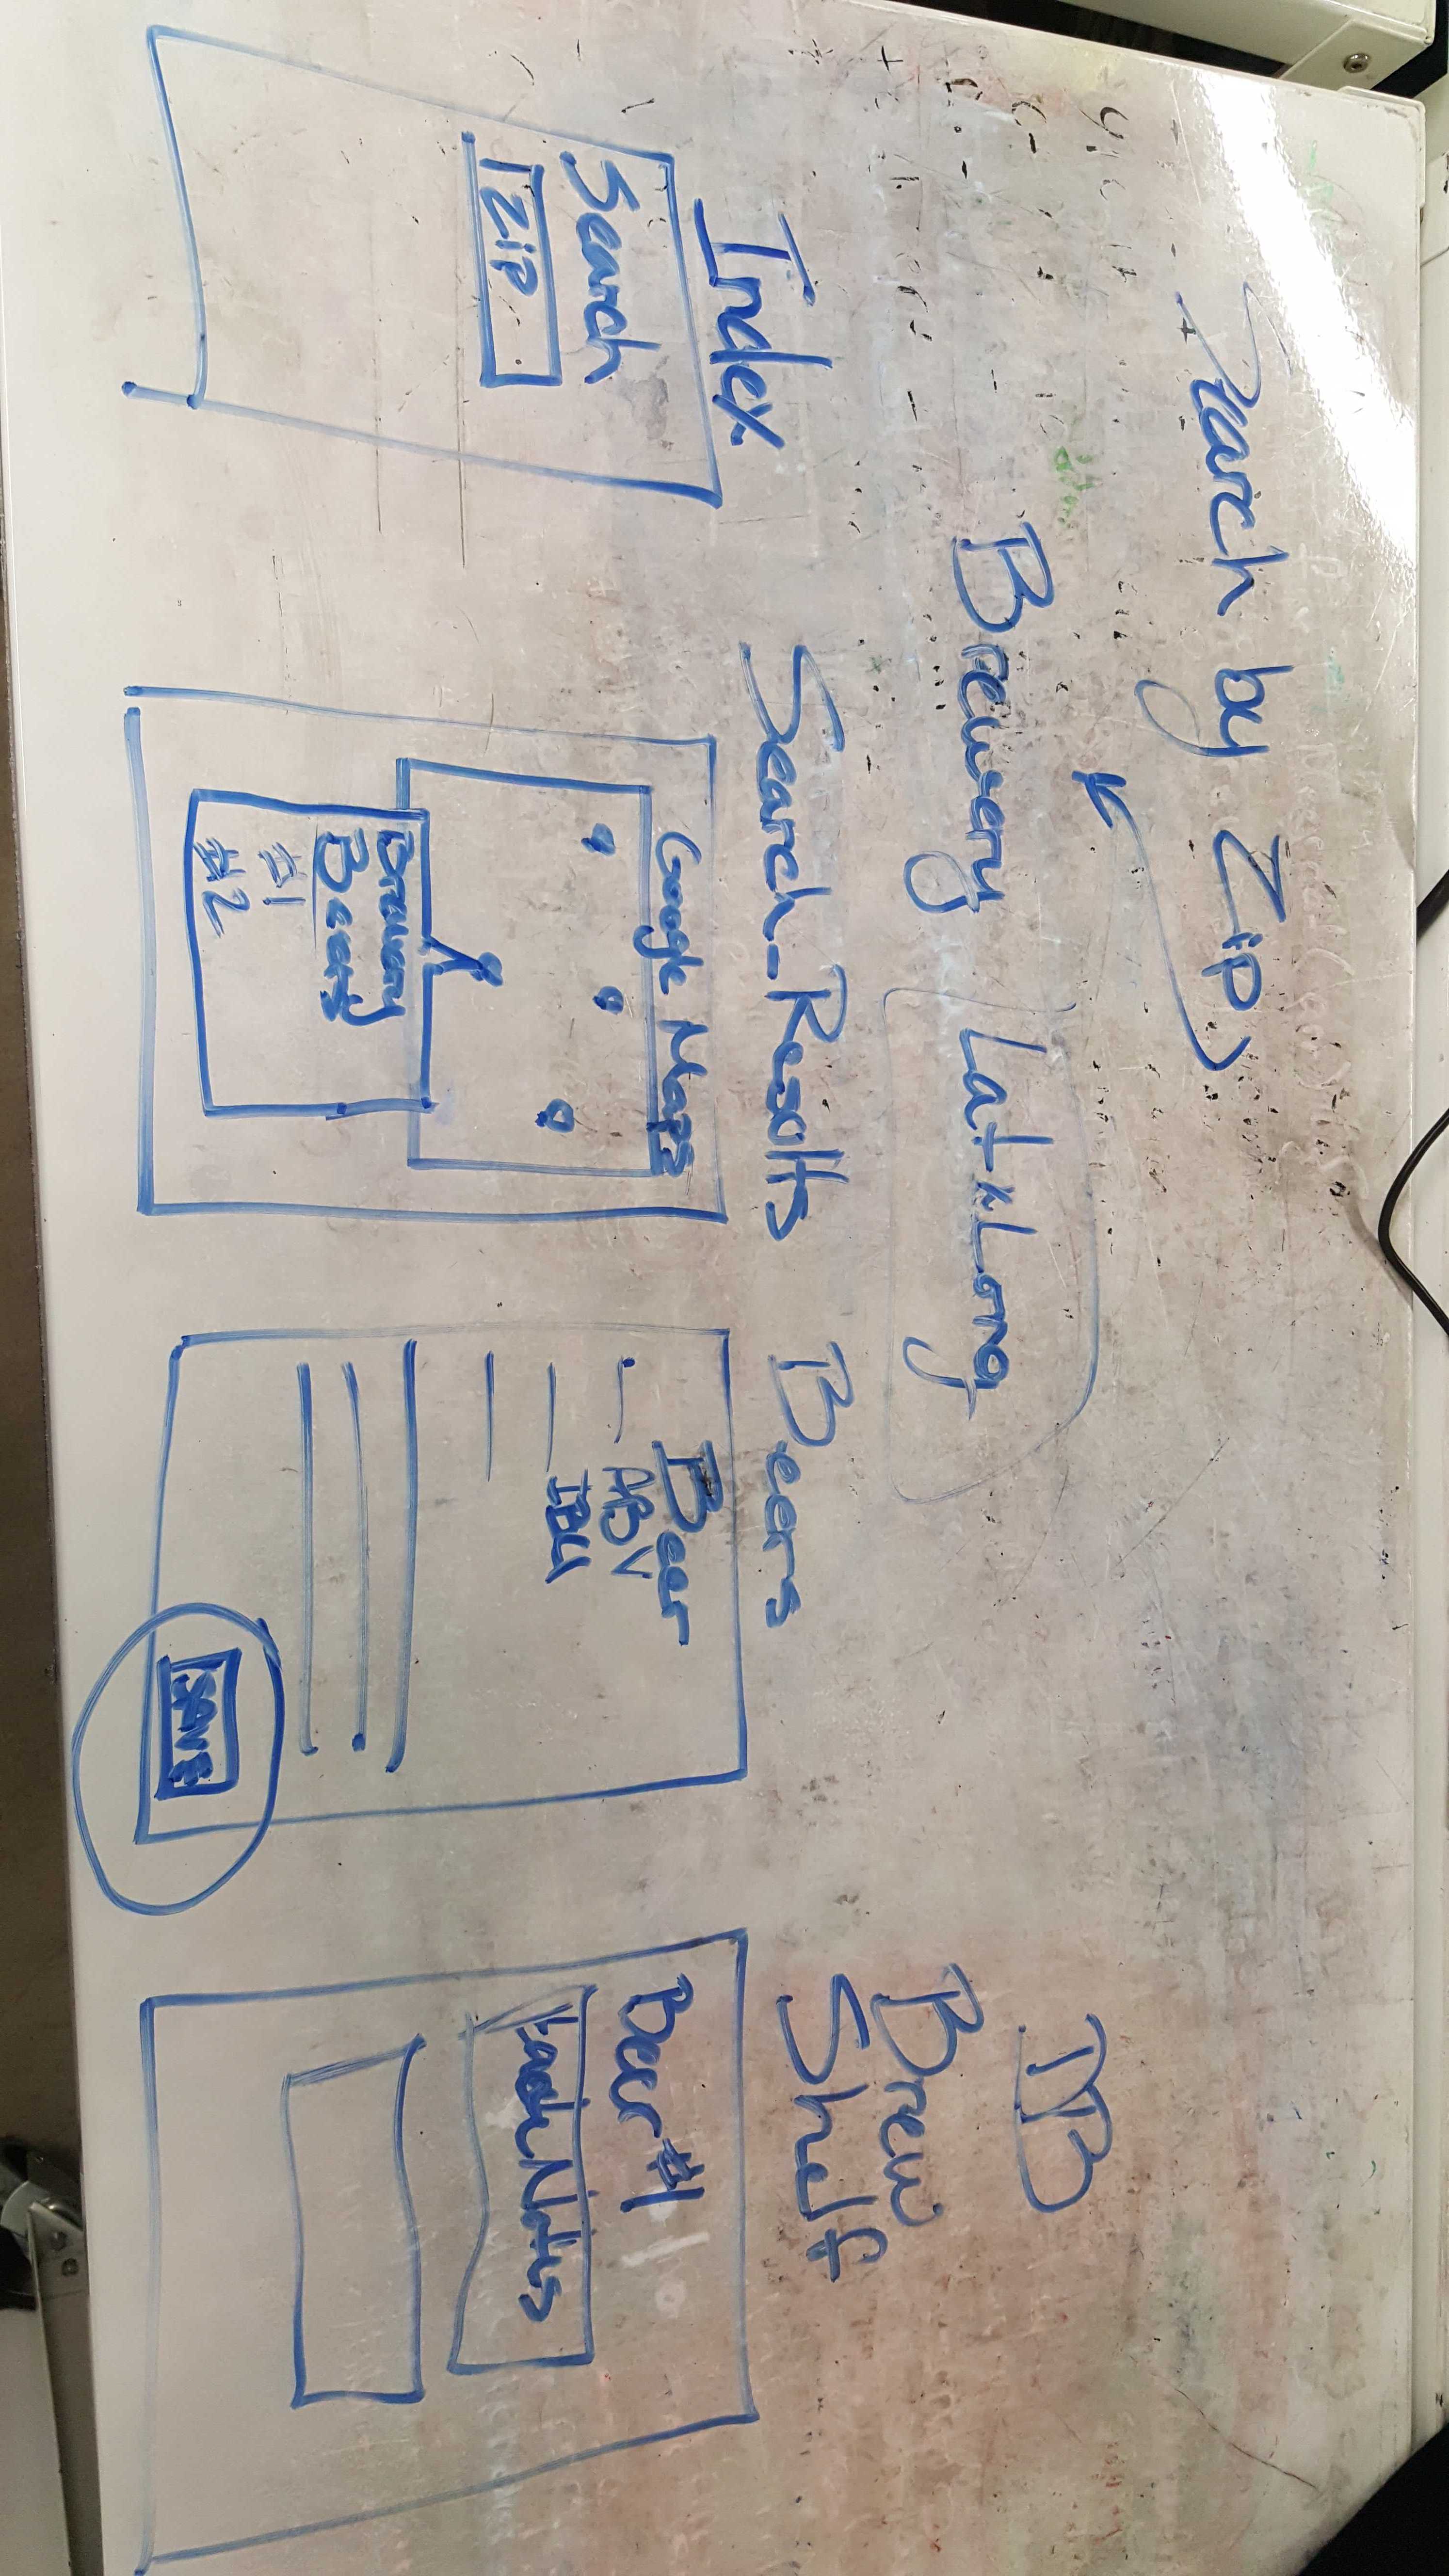 Search by Zip
Brewery Lat Long
DB
Index
Search
Zip
Search_Results
Google Maps
Brewery
Beers
#1
#2
Beers
Beer
ABV
IBU
SAVE
Brew
Shelf
Beer #1
Notes